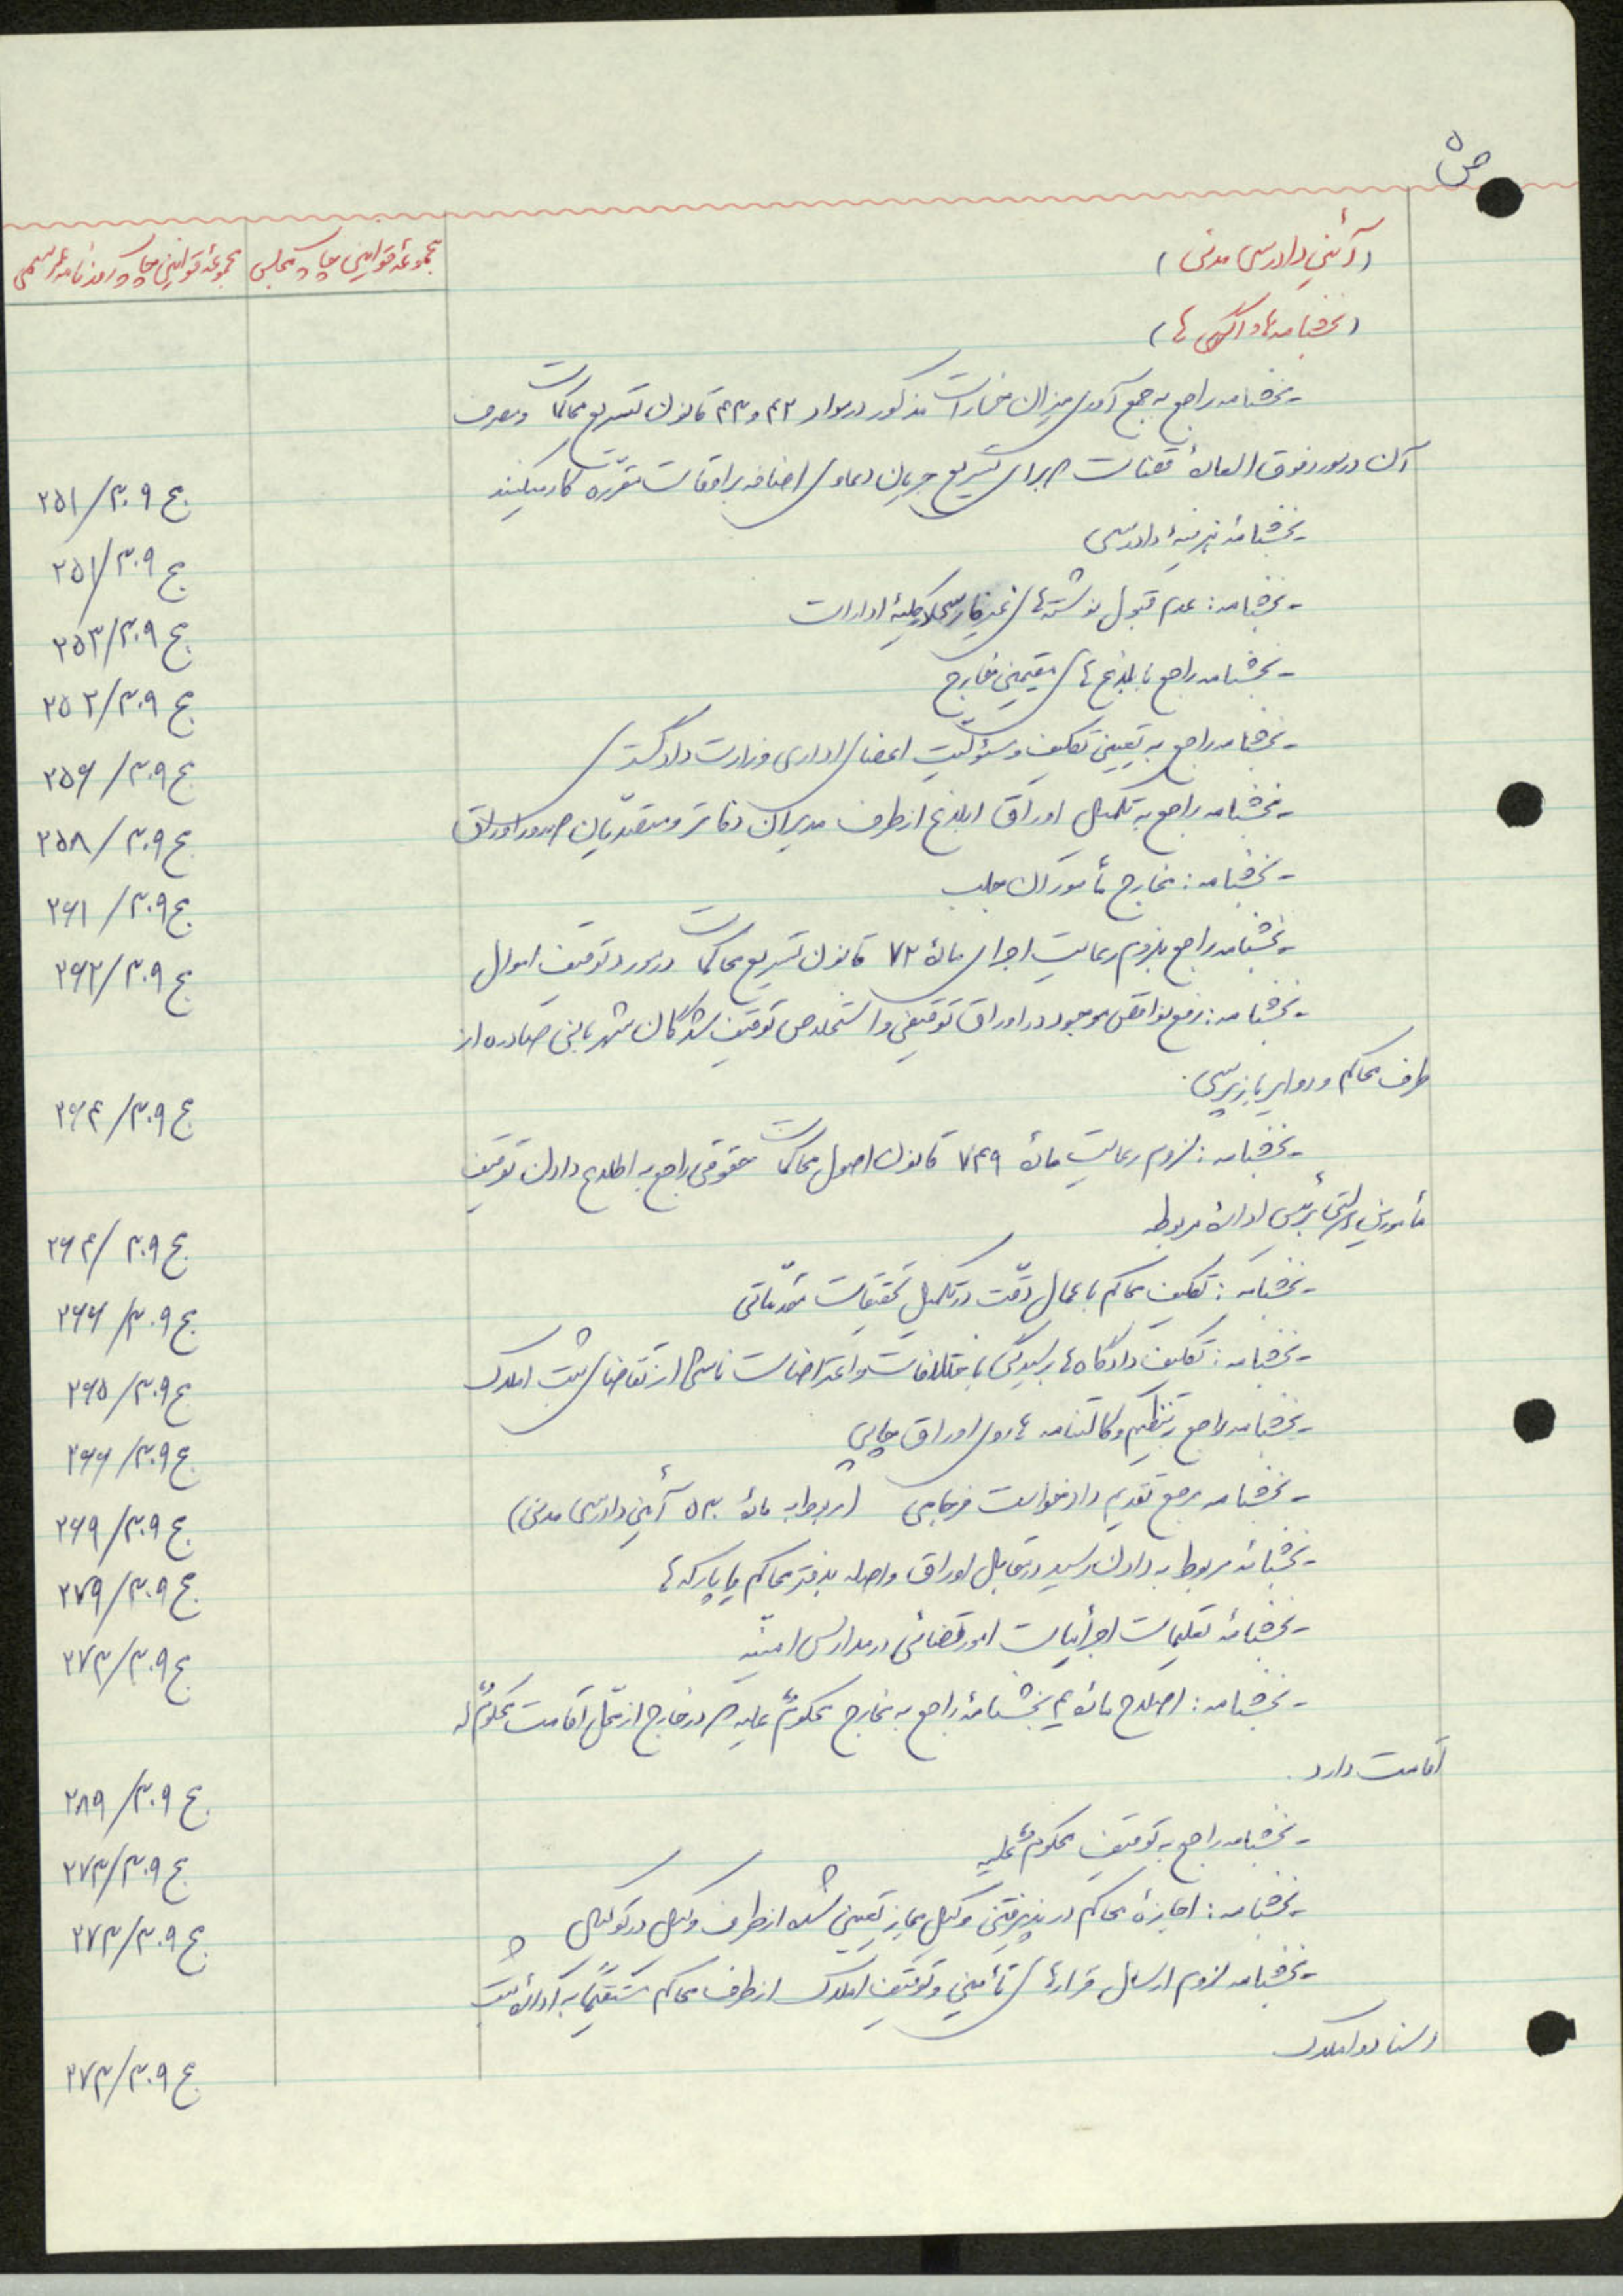 ص ۵
مجموعهٔ قوانین چاپ مجلس
مجموعهٔ قوانین چاپ روزنامهٔ رسمی
(آئین دادرسی مدنی)
(بخشنامه‌ها و آگهی‌ها)
- بخشنامه راجع به جمع آوری میزان خسارات مذکور در مواد ۴۲ و ۴۳ قانون تسریع محاکمات و مصرف
آن در مورد فوق العادهٔ قضات که برای تسریع جریان دعاوی اضافه بر اوقات مقرّره کار میکنند
ج ۳۰۹/۲۵۱
- بخشنامهٔ هزینهٔ دادرسی
ج ۳۰۹/۲۵۱
- بخشنامه: عدم قبول نوشته‌های غیر فارسی کلیهٔ ادارات
ج ۳۰۹/۲۵۳
- بخشنامه راجع بابلاغ‌های مقیمین خارج
ج ۳۰۹/۲۵۲
- بخشنامه راجع به تعیین تکلیف و مسئولیت اعضای اداری وزارت دادگستری
ج ۳۰۹/۲۵۶
- بخشنامه راجع به تکمیل اوراق ابلاغ از طرف مدیران دفاتر و متصدّیان صدور اوراق
ج ۳۰۹/۲۵۸
- بخشنامه: مخارج مأموران جلب
ج ۳۰۹/۲۶۱
- بخشنامه راجع بلزوم رعایت اجرای مادهٔ ۷۲ قانون تسریع محاکمات در مورد توقیف اموال
ج ۳۰۹/۲۶۲
- بخشنامه: رفع نواقص موجود در اوراق توقیفی و استخلاص توقیف شدگان شهربانی صادره از
طرف محاکم و دوایر بازپرسی.
ج ۳۰۹/۲۶۴
- بخشنامه: لزوم رعایت مادهٔ ۷۴۹ قانون اصول محاکمات حقوقی راجع به اطلاع دادن توقیف
مأمورین دولتی برئیس ادارهٔ مربوطه
ج ۳۰۹/۲۶۴
- بخشنامه: تکلیف محاکم باعمال دقّت در تکمیل تحقیقات مقدّماتی
ج ۳۰۹/۲۶۶
- بخشنامه: تکلیف دادگاه‌ها برسیدگی باختلافات و اعتراضات ناشی از تقاضای ثبت املاک
ج ۳۰۹/۲۶۵
- بخشنامه راجع بتنظیم وکالتنامه‌ها روی اوراق چاپی
ج ۳۰۹/۲۶۶
- بخشنامه مرجع تقدیم دادخواست فرجامی (مربوط به مادهٔ ۵۳۰ آئین دادرسی مدنی)
ج ۳۰۹/۲۶۹
- بخشنامه مربوط به دادن رسید در مقابل اوراق واصله بدفتر محاکم یا پارکه‌ها
ج ۳۰۹/۲۷۹
- بخشنامهٔ تعلیمات اجرائیات امور قضائی در مدارس امنیّه
ج ۳۰۹/۲۷۳
- بخشنامه: اصلاح مادهٔ ۴ بخشنامهٔ راجع به مخارج محکومٌ علیه که در خارج از محلّ اقامت محکومٌ له
اقامت دارد.
ج ۳۰۹/۲۸۹
- بخشنامه راجع به توقیف محکومٌ علیه
ج ۳۰۹/۲۷۳
- بخشنامه: اجازهٔ محاکم در پذیرفتن وکیل مجاز تعیین شده از طرف وکیل در توکیل
ج ۳۰۹/۲۷۳
- بخشنامه لزوم ارسال قرارهای تأمینی و توقیف املاک از طرف محاکم مستقیماً به ادارهٔ ثبت
اسناد و املاک
ج ۳۰۹/۲۷۳